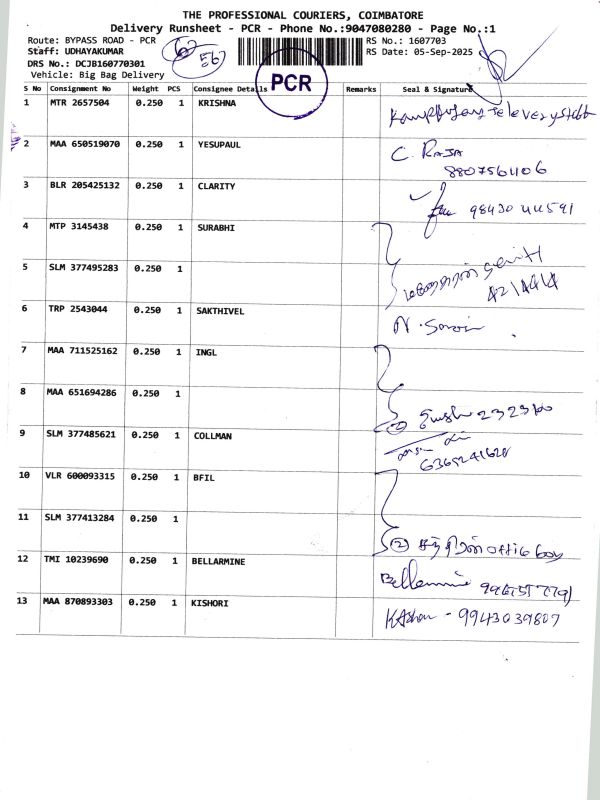 THE PROFESSIONAL COURIERS, COIMBATORE
Delivery Runsheet - PCR - Phone No.:9047080280 - Page No.:1
Route: BYPASS ROAD - PCR
RS No.: 1607703
Staff: UDHAYAKUMAR
RS Date: 05-Sep-2025
DRS No.: DCJB160770301
Vehicle: Big Bag Delivery
PCR
567
S No Consignment No Weight PCS Consignee Details Remarks Seal & Signature
1 MTR 2657504 0.250 1 KRISHNA
2 MAA 650519070 0.250 1 YESUPAUL C. RAJA
8807564106
3 BLR 205425132 0.250 1 CLARITY 9843044591
4 MTP 3145438 0.250 1 SURABHI
5 SLM 377495283 0.250 1
6 TRP 2543044 0.250 1 SAKTHIVEL
7 MAA 711525162 0.250 1 INGL
8 MAA 651694286 0.250 1
9 SLM 377485621 0.250 1 COLLMAN
10 VLR 600093315 0.250 1 BFIL
11 SLM 377413284 0.250 1 2 office boy
12 TMI 10239690 0.250 1 BELLARMINE Bellarmine
13 MAA 870893303 0.250 1 KISHORI - 9943039807